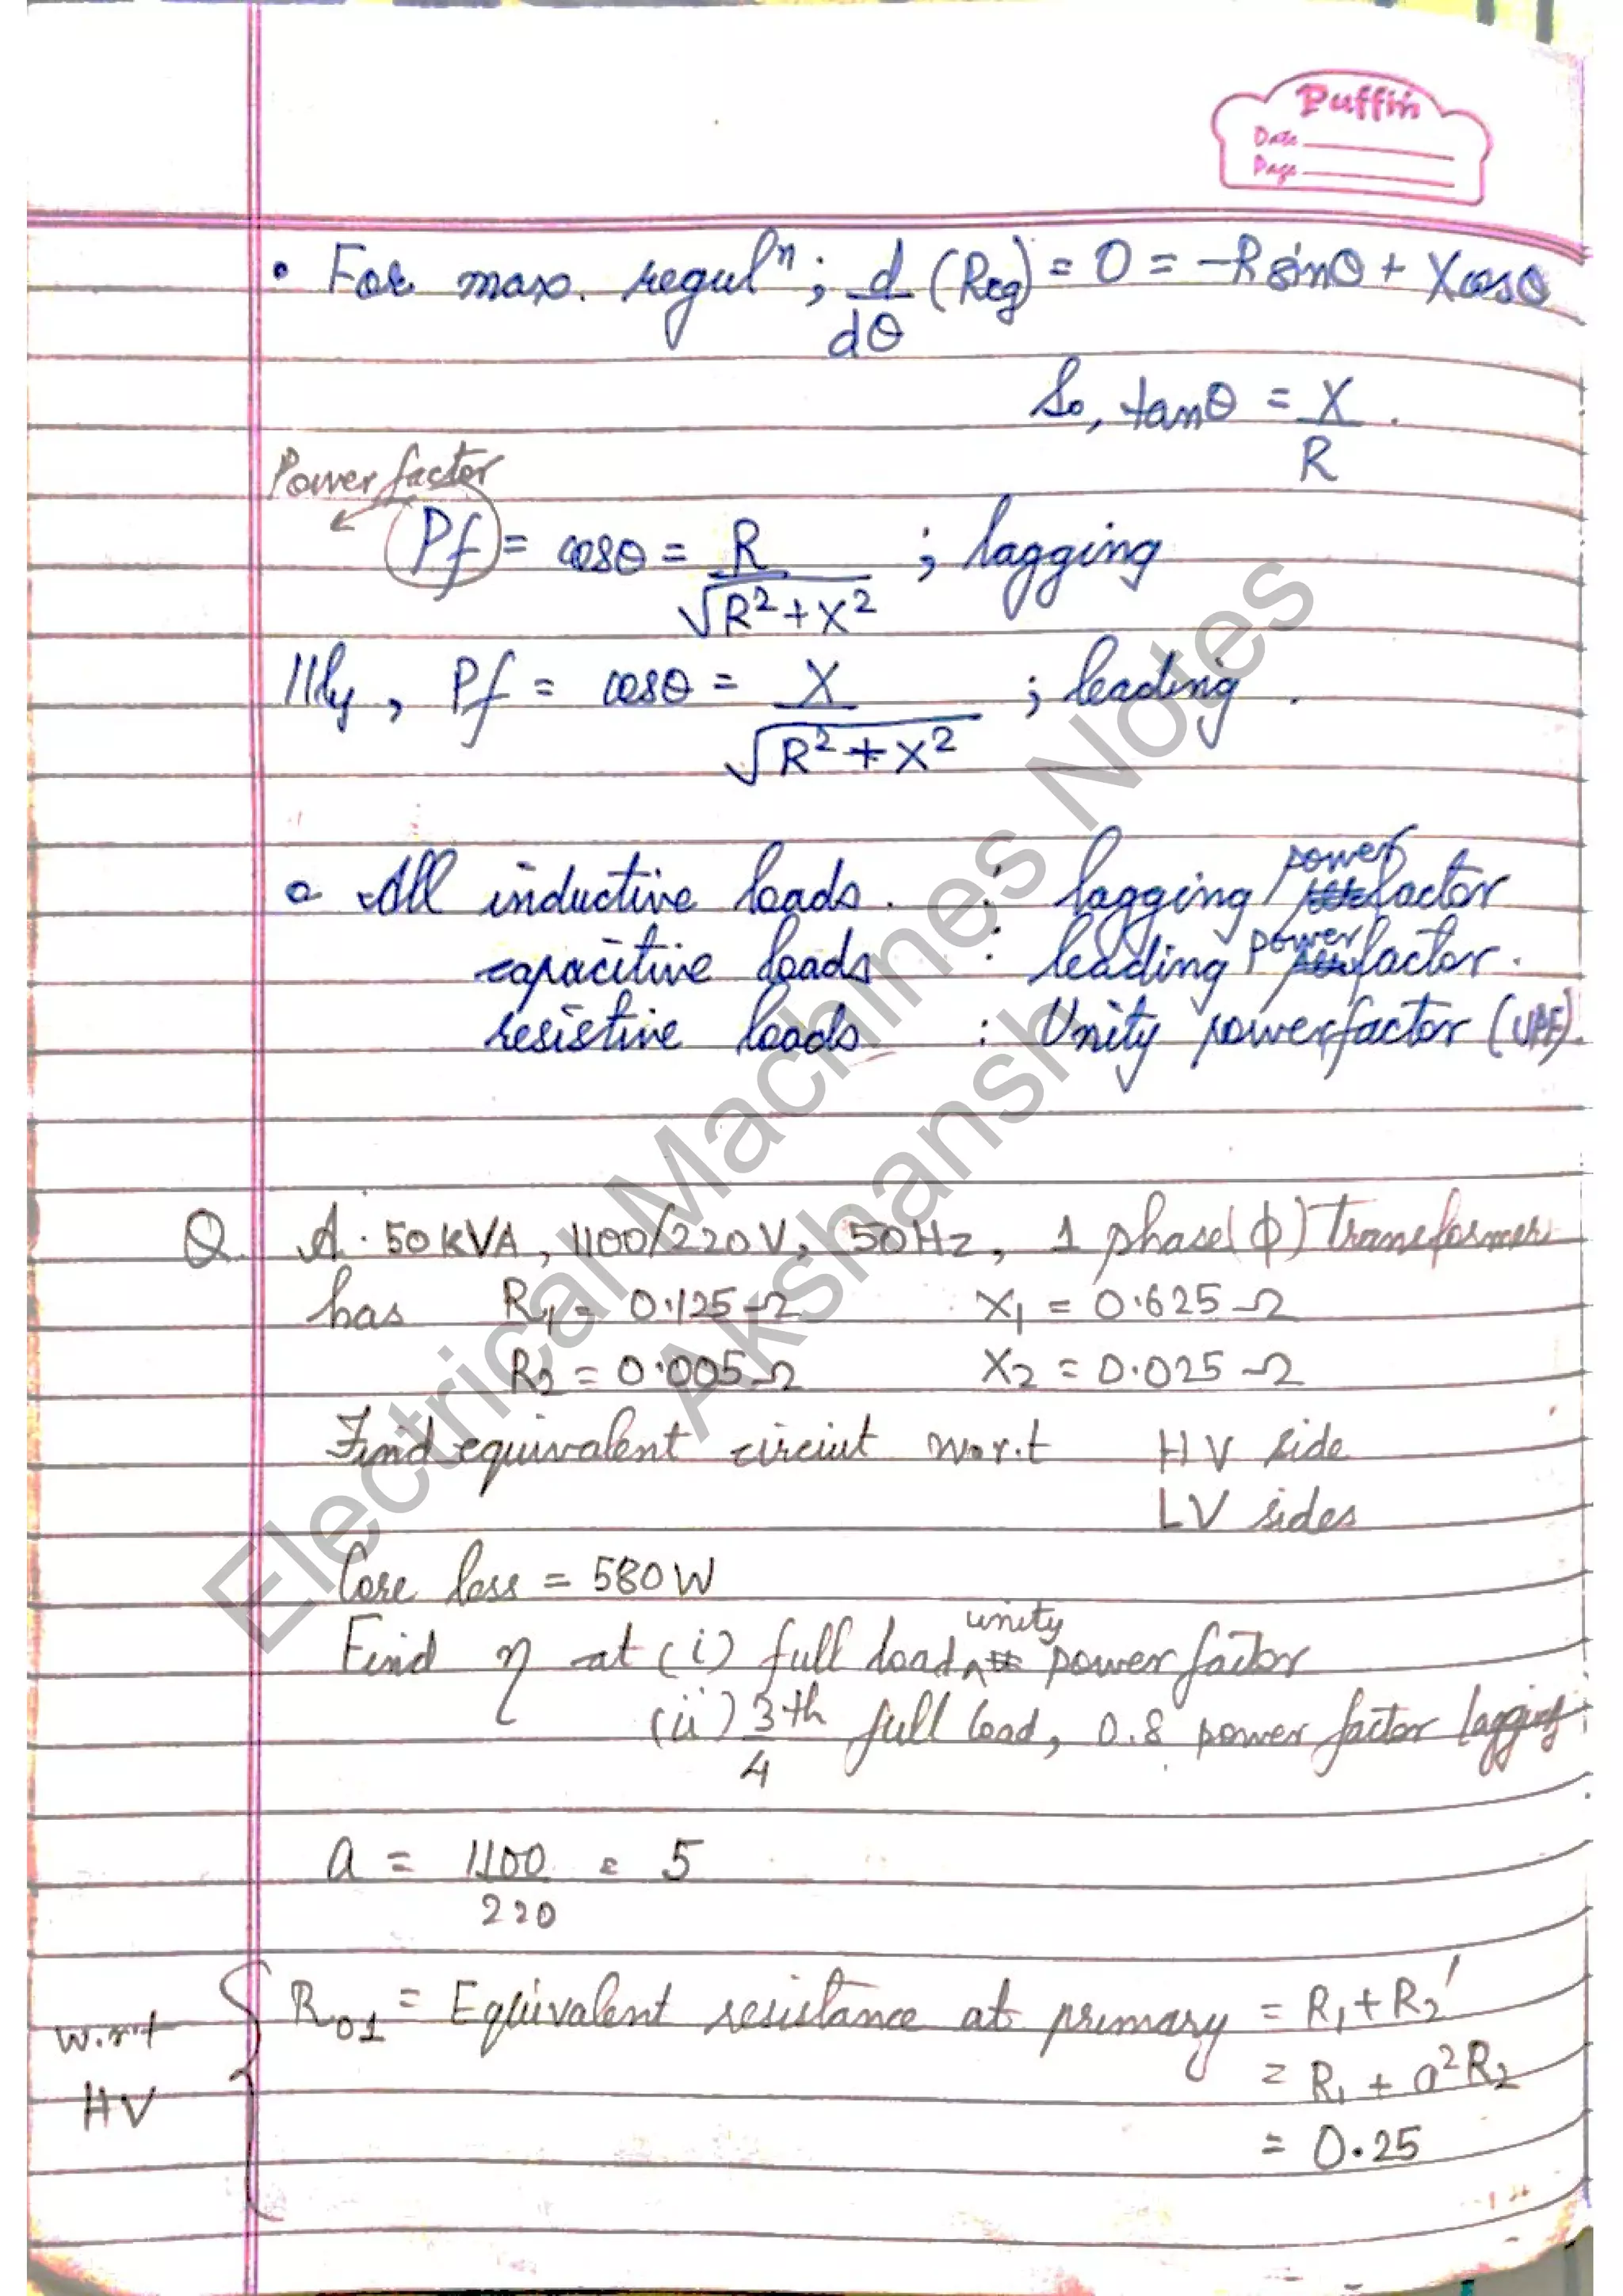 Puffin
Date
Page
• For max. regulⁿ; d/dθ (Reg) = 0 = -R sinθ + X cosθ
So, tanθ = X/R.
Power factor
Pf = cosθ = R/√R²+X² ; lagging
||ly, Pf = cosθ = X/√R²+X² ; leading.
All inductive loads. : lagging power factor
capacitive loads : leading power factor.
resistive loads : Unity power factor (UPF).
Q. A. 50KVA, 1100/220V, 50Hz, 1 phase(φ) transformer
has R1 = 0.125Ω X1 = 0.625Ω
R2 = 0.005Ω X2 = 0.025Ω
Find equivalent circiut w.r.t HV side
LV sides
Core loss = 580W
Find η at (i) full load unity power factor
(ii) 3/4th full load, 0.8 power factor lagging.
a = 1100/220 = 5
w.r.t HV { R01 = Equivalent resistance at primary = R1 + R2'
= R1 + a²R2
= 0.25
Electrical Machines Notes
Akshansh